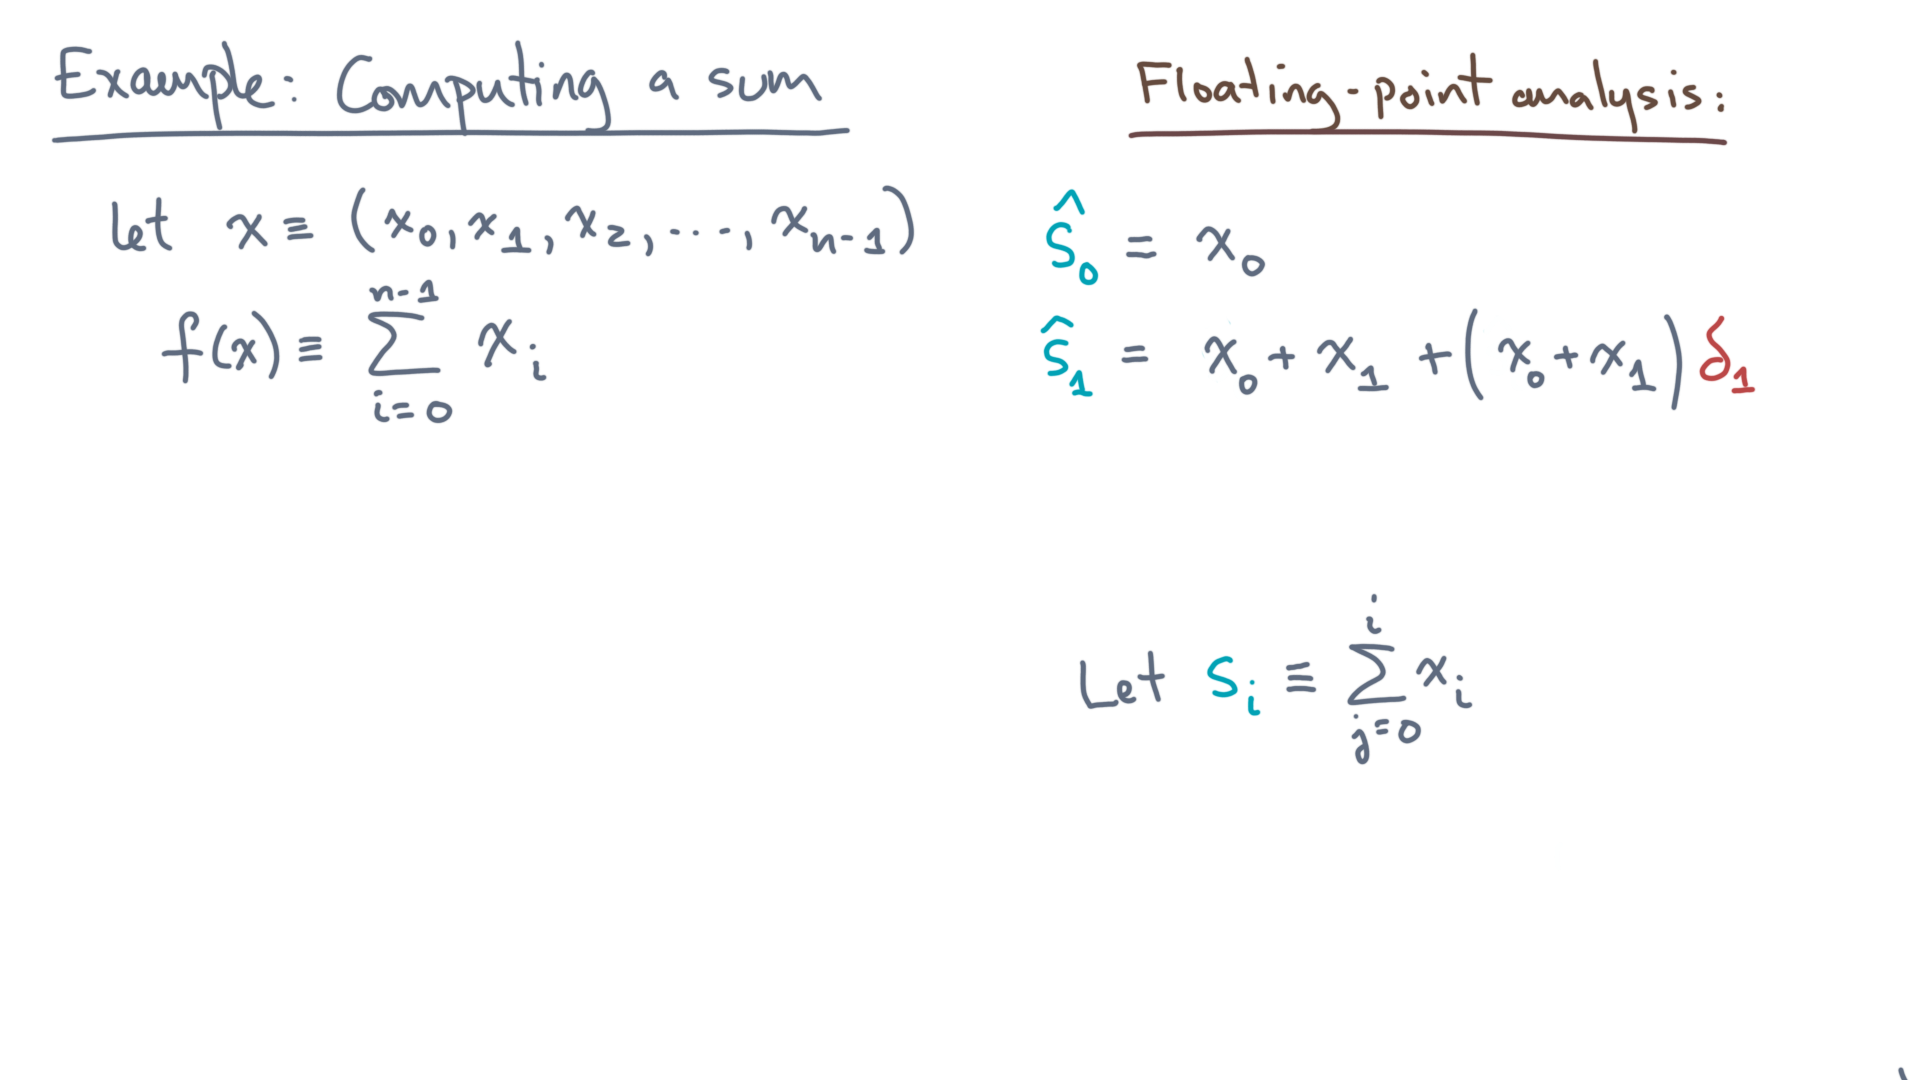 Example: Computing a sum
let x ≡ (x₀, x₁, x₂, ..., xₙ₋₁)
f(x) ≡ ∑_{i=0}^{n-1} xᵢ
Floating-point analysis:
ŝ₀ = x₀
ŝ₁ = x₀ + x₁ + (x₀ + x₁) δ₁
Let sᵢ ≡ ∑_{j=0}^{i} xᵢ